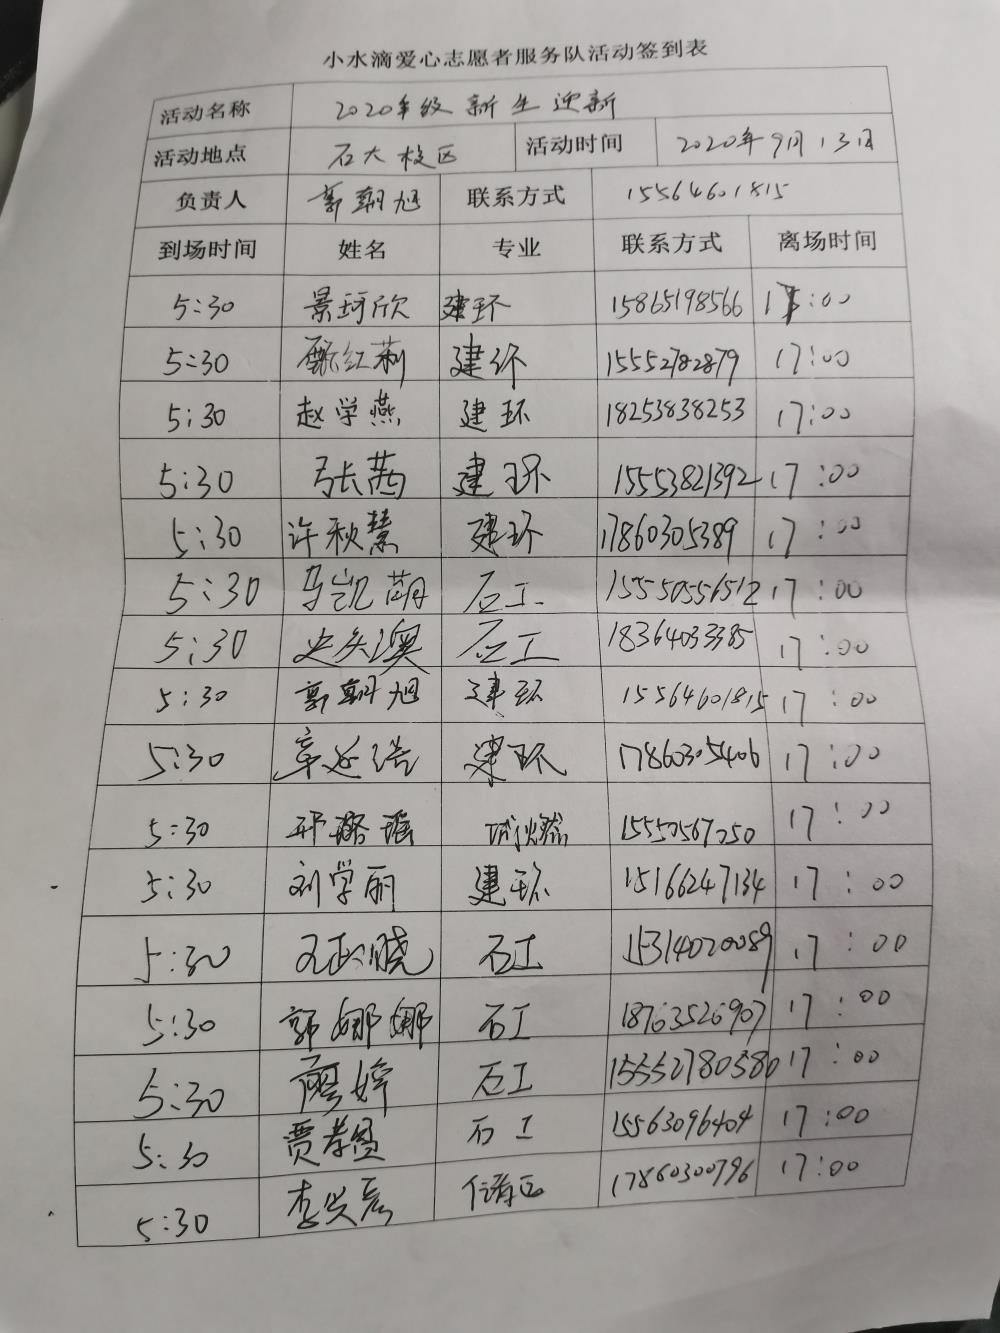 小水滴爱心志愿者服务队活动签到表
活动名称 2020年级新生迎新
活动地点 石大校区 活动时间 2020年9月13日
负责人 郭朝旭 联系方式 15564601815
到场时间 姓名 专业 联系方式 离场时间
5:30 景珂欣 建环 15865198566 17:00
5:30 甄红莉 建环 15552782879 17:00
5:30 赵学燕 建环 18253838253 17:00
5:30 张茜 建环 15553821392 17:00
5:30 许秋慧 建环 17860305389 17:00
5:30 马凯萌 石工 15550556512 17:00
5:30 石工 18364033385 17:00
5:30 郭朝旭 建环 15564601815 17:00
5:30 章延浩 建环 17860305406 17:00
5:30 邢璐瑶 城燃 15550567050 17:00
5:30 刘学丽 建环 15166247134 17:00
5:30 石工 15314020089 17:00
5:30 郭娜娜 石工 18763526907 17:00
5:30 石工 15552780580 17:00
5:30 贾孝 石工 15563096404 17:00
5:30 李 17860300796 17:00